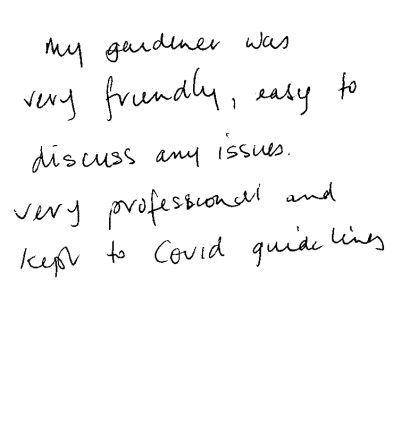 My gardener was
very friendly, easy to
discuss any issues.
very professional and
kept to Covid guidelines